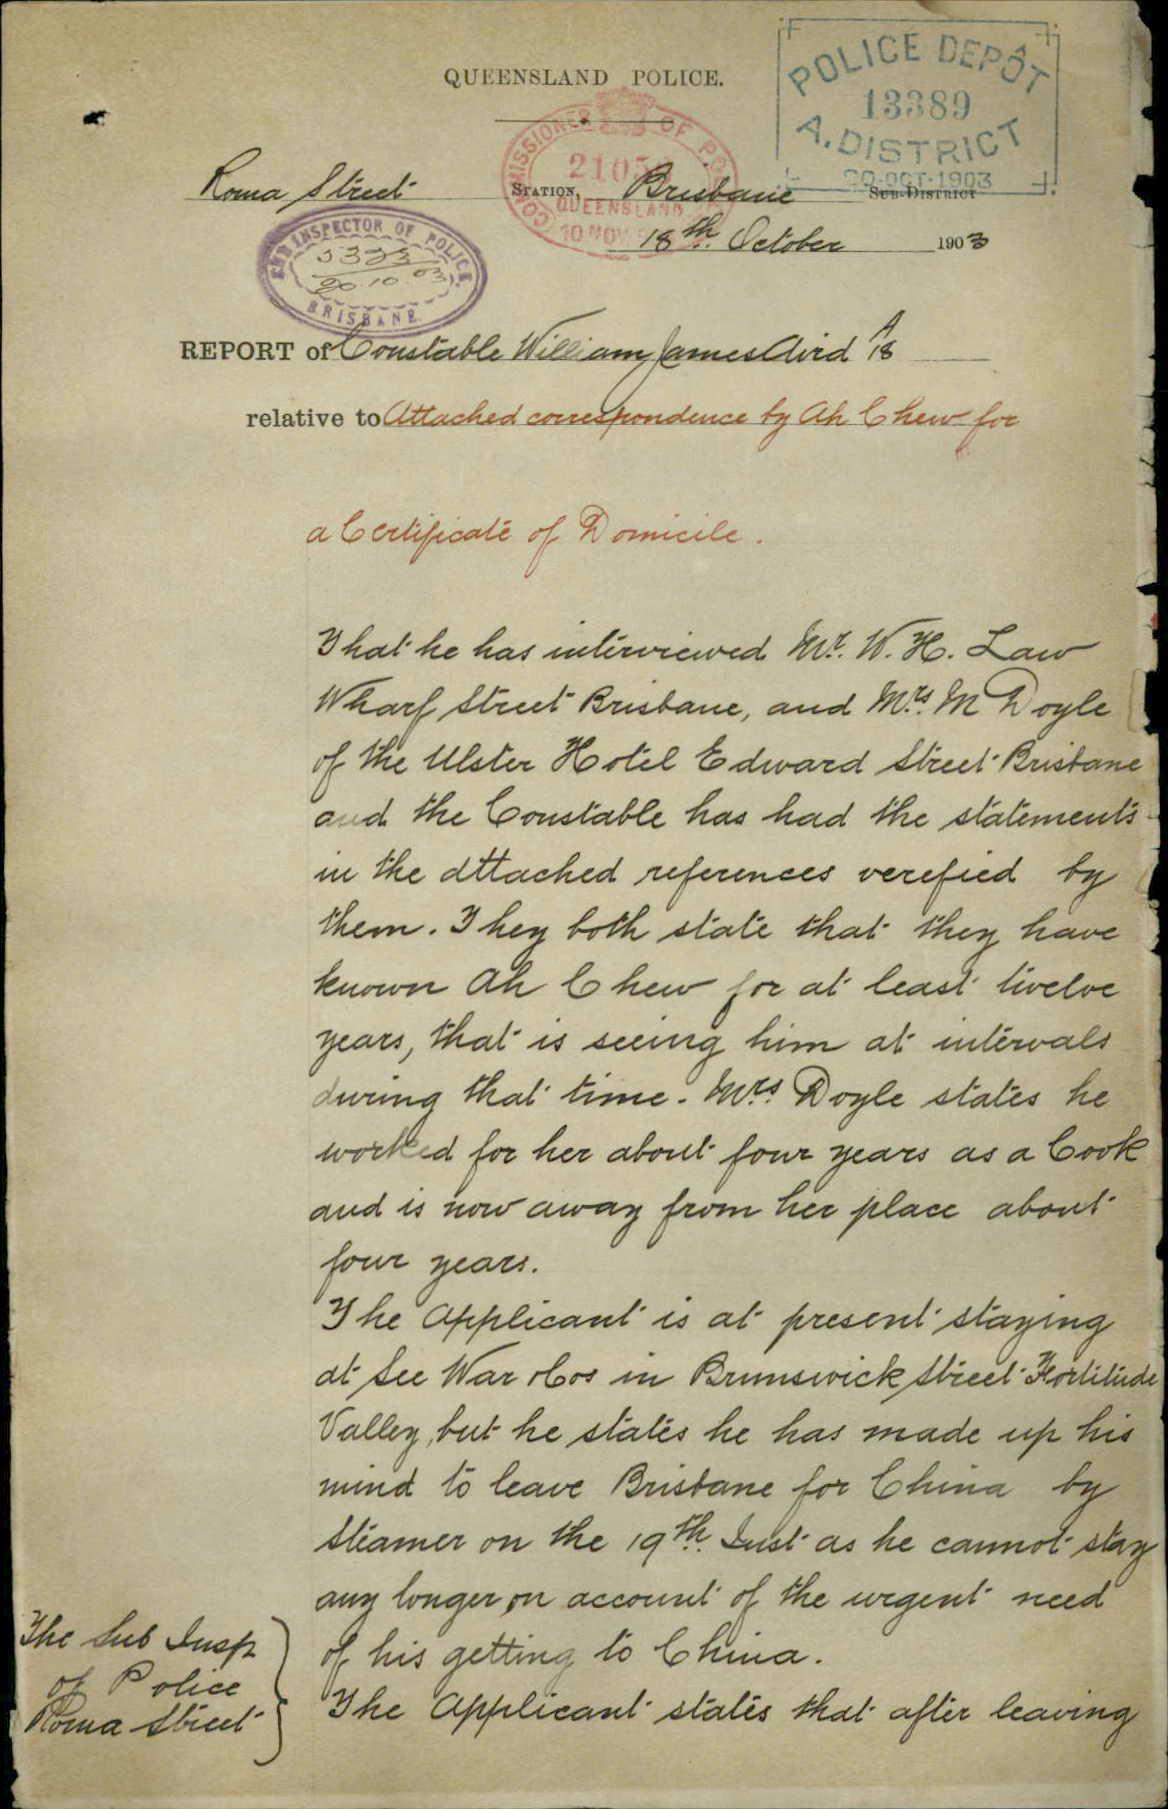 QUEENSLAND POLICE.
POLICE DEPÔT
13389
A. DISTRICT
20·OCT·1903
COMMISSIONER OF
QUEENSLAND
10 NOV
Roma Street STATION, Brisbane SUB-DISTRICT
18th. October 1903
SUB INSPECTOR OF POLICE.
5323
20.10.03
BRISBANE
REPORT of Constable William James Aird A/18
relative to Attached correspondence by Ah Chew for
a Certificate of Domicile.
That he has interviewed Mr. W. H. Law
Wharf Street Brisbane, and Mrs. M Doyle
of the Ulster Hotel Edward Street Brisbane
and the Constable has had the statements
in the attached references verefied by
them. They both state that they have
known Ah Chew for at least twelve
years, that is seeing him at intervals
during that time. Mrs. Doyle states he
worked for her about four years as a Cook
and is now away from her place about
four years.
The Applicant is at present staying
at See War & Cos in Brunswick Street Fortitude
Valley, but he states he has made up his
mind to leave Brisbane for China by
Steamer on the 19th. Inst as he cannot stay
any longer, on account of the urgent need
of his getting to China.
The Applicant states that after leaving
The Sub Insp
of Police
Roma Street